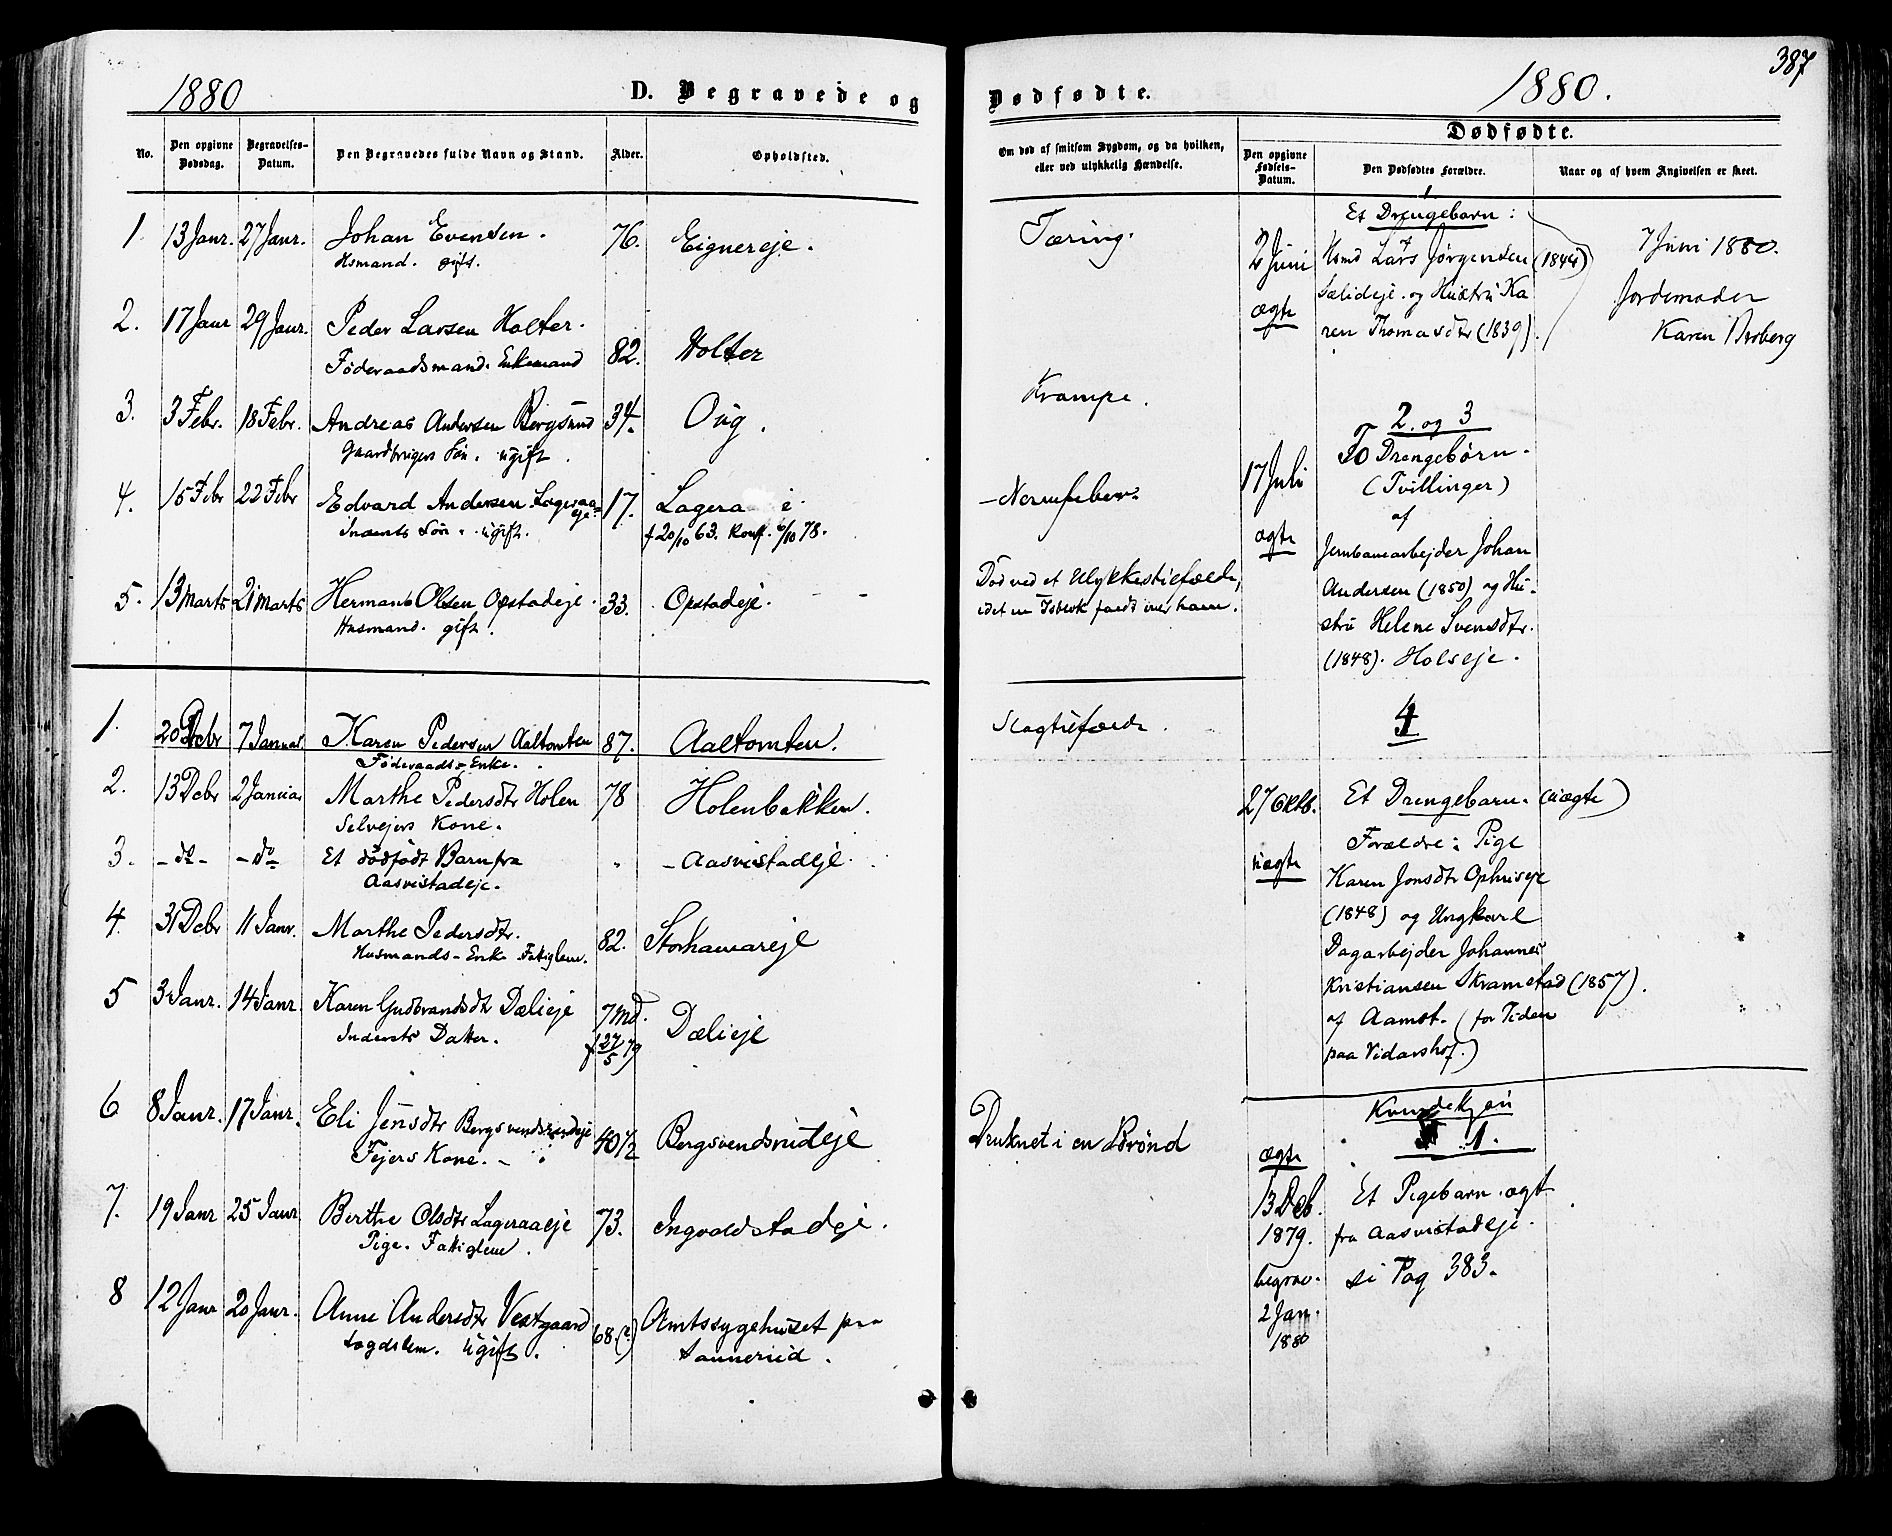 387
1880
D. Begravede og
Dødfødte.
1880.
No.
Den opgivne Dødsdag.
Begravelses-Datum.
Den Begravedes fulde Navn og Stand.
Alder.
Opholdsted.
Om død af smitsom Sygdom, og da hvilken,
eller ved ulykkelig Hændelse.
Dødfødte.
Den opgivne Fødsels-Datum.
Den Dødfødtes Forældre.
Naar og af hvem Angivelsen er skeet.
1. 13 Janr. 27 Janr. Johan Evensen. 76. Eignereje. Tæring.
Hsmand. gift.
2. 17 Janr 29 Janr. Peder Larsen Holter.
Føderaadsmand. Enkemand 82. Holter
3. 3 Febr. 18 Febr. Andreas Andersen Bergsund 34. Oug. Krampe.
Gaardbrugers Søn. ugift.
4. 15 Febr 22 Febr Edvard Andersen Lageraa=
eje. 17. Lageraa e. - Nervefeber.
Indersts Søn. ugift. f 20/10 63. Konf. 6/10 78.
5. 13 Marts 21 Marts Herman Olsen Opstadeje. 33. Opstadeje. Død ved et Ulykkestilfælde,
Husmand. gift. idet en Isblok faldt over ham.
1. 20 Debr 7 Januar Karen Pedersen Aaltomten 87. Aaltomten. Slagtilfælde.
Føderaads-Enke.
2. 13 Debr 2 Januar Marthe Pedersdtr Holen 78 Holenbakken.
Selvejers Kone.
3. - do - - do Et dødfødt Barn fra " - Aasvistadeje.
Aasvistadeje.
4. 31 Debr 11 Janr. Marthe Pedersdtr. 82. Storhamareje
Husmands-Enke Fattiglem.
5 3 Janr. 14 Janr. Karen Gudbrandsdt Dælieje 7 Md. Dælieje
Indersts Datter. f 27/5 79
6 8 Janr. 17 Janr. Eli Jensdtr Bergsvendsrudeje 40 1/2 Bergsvendsrudeje Druknet i en Brønd
Fejers Kone.
7. 19 Janr 25 Janr Berthe Olsdtr Lageraaeje 73. Ingvoldstadeje.
Pige. Fattiglem.
8 12 Janr 20 Janr. Anne Andersdtr Vestgaard 68 (?) Amtssygehuset paa
Logdslem. ugift. Sannerud.
1
Et Drengebarn:
2 Juni
ægte
Hsmd Lars Jørgensen (1844)
Sælideje. og Hustru Ka
ren Thomasdtr (1839).
7 Juni 1880.
Jordemoder
Karen Berberg
2. og 3
17 Juli
ægte
To Drengebørn.
(Tvillinger)
af
Jernbanearbejder Johan
Andersen (1850) og Hu-
stru Helene Svensdtr.
(1848). Holseje.
4
27 Oktb.
uægte
Et Drengebarn. (uægte)
Forældre: Pige
Karen Jonsdtr Ophuseje
(1848) og Ungkarl
Dagarbejder Johannes
Kristiansen Skramstad (1857).
af Aamot. (for Tiden
paa Vidarshof.)
Kvindekjøn
1.
ægte
13 Deb.
1879.
begrav.
2 Jan.
1880
Et Pigebarn. ægt
fra Aasvistadeje.
se Pag 383.